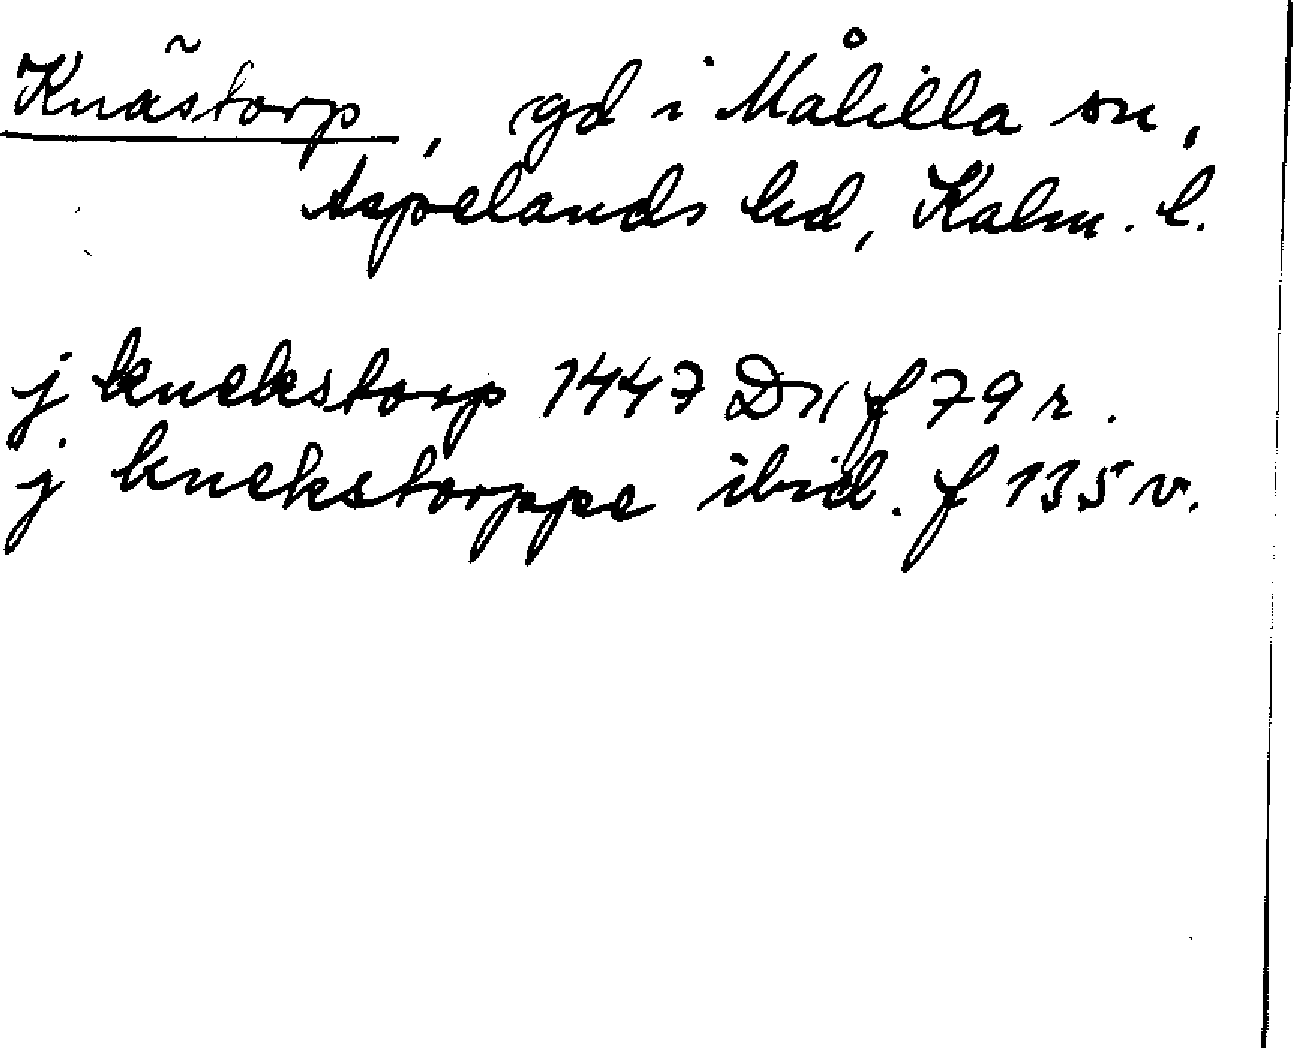 Knästorp, gd i Målilla sn,
Aspelands hd, Kalm. l.
j knekstorp 1447 D11 f 79 r.
j knekstorppe ibid. f 135 v.